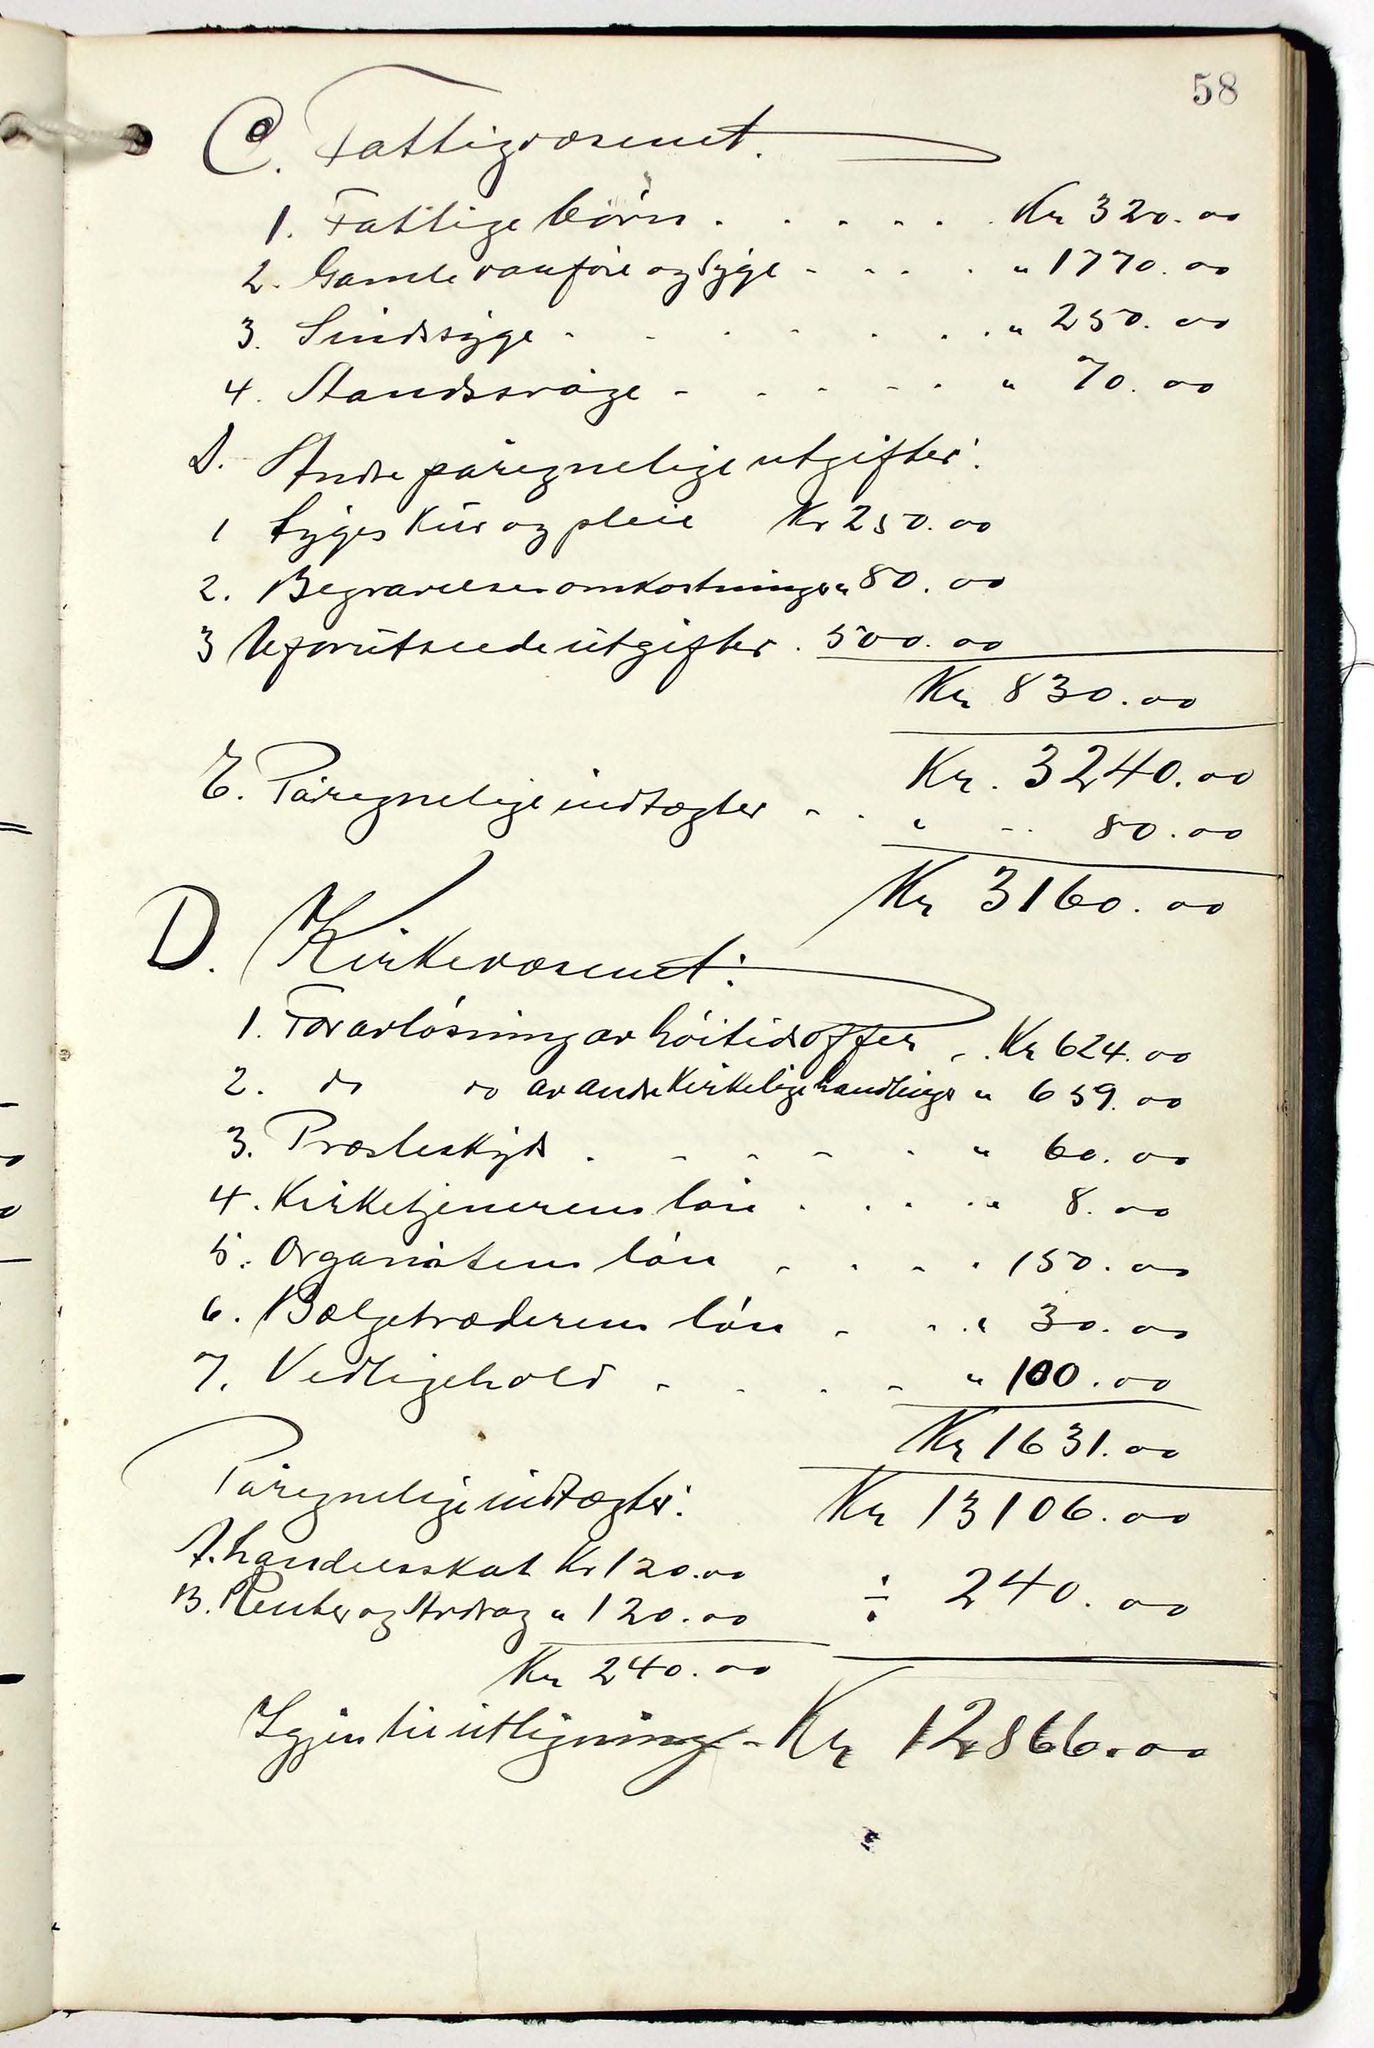 58
C. Fattigvæsenet.
1. Fattige børn . . . . . . Kr 320.00
2. Gamle vanføre og syge - - . . " 1770.00
3. Sindssyge - . . . . . . " 250.00
4. Åandssvage - . . . . " 70.00
D. Andre påregnelige utgifter:
1 Syges Kur og pleie Kr 250.00
2. Begravelsesomkostninger " 80.00
3 Uforutseede utgifter . 500.00
Kr 830.00
Kr. 3240.00
E. Påregnelige indtægter - . " - . 80.00
Kr 3160.00
D. Kirkevæsenet:
1. For avløsning av høitidsoffer - . Kr 624.00
2. do do av andre Kirkelige handlinger " 659.00
3. Præsteskyds . - - - - . " 60.00
4. Kirketjenerens løn . . . . " 8.00
5. Organistens løn - . . . 150.00
6. Bælgetræderens løn - . . " 30.00
7. Vedligehold - . . - " 100.00
Kr 1631.00
Påregnelige indtægter: Kr 13106.00
A. handelsskat Kr 120.00
B. Renter og Avdrag " 120.00 ÷ 240.00
Kr 240.00
Igjen til utligning - Kr 12,866.00